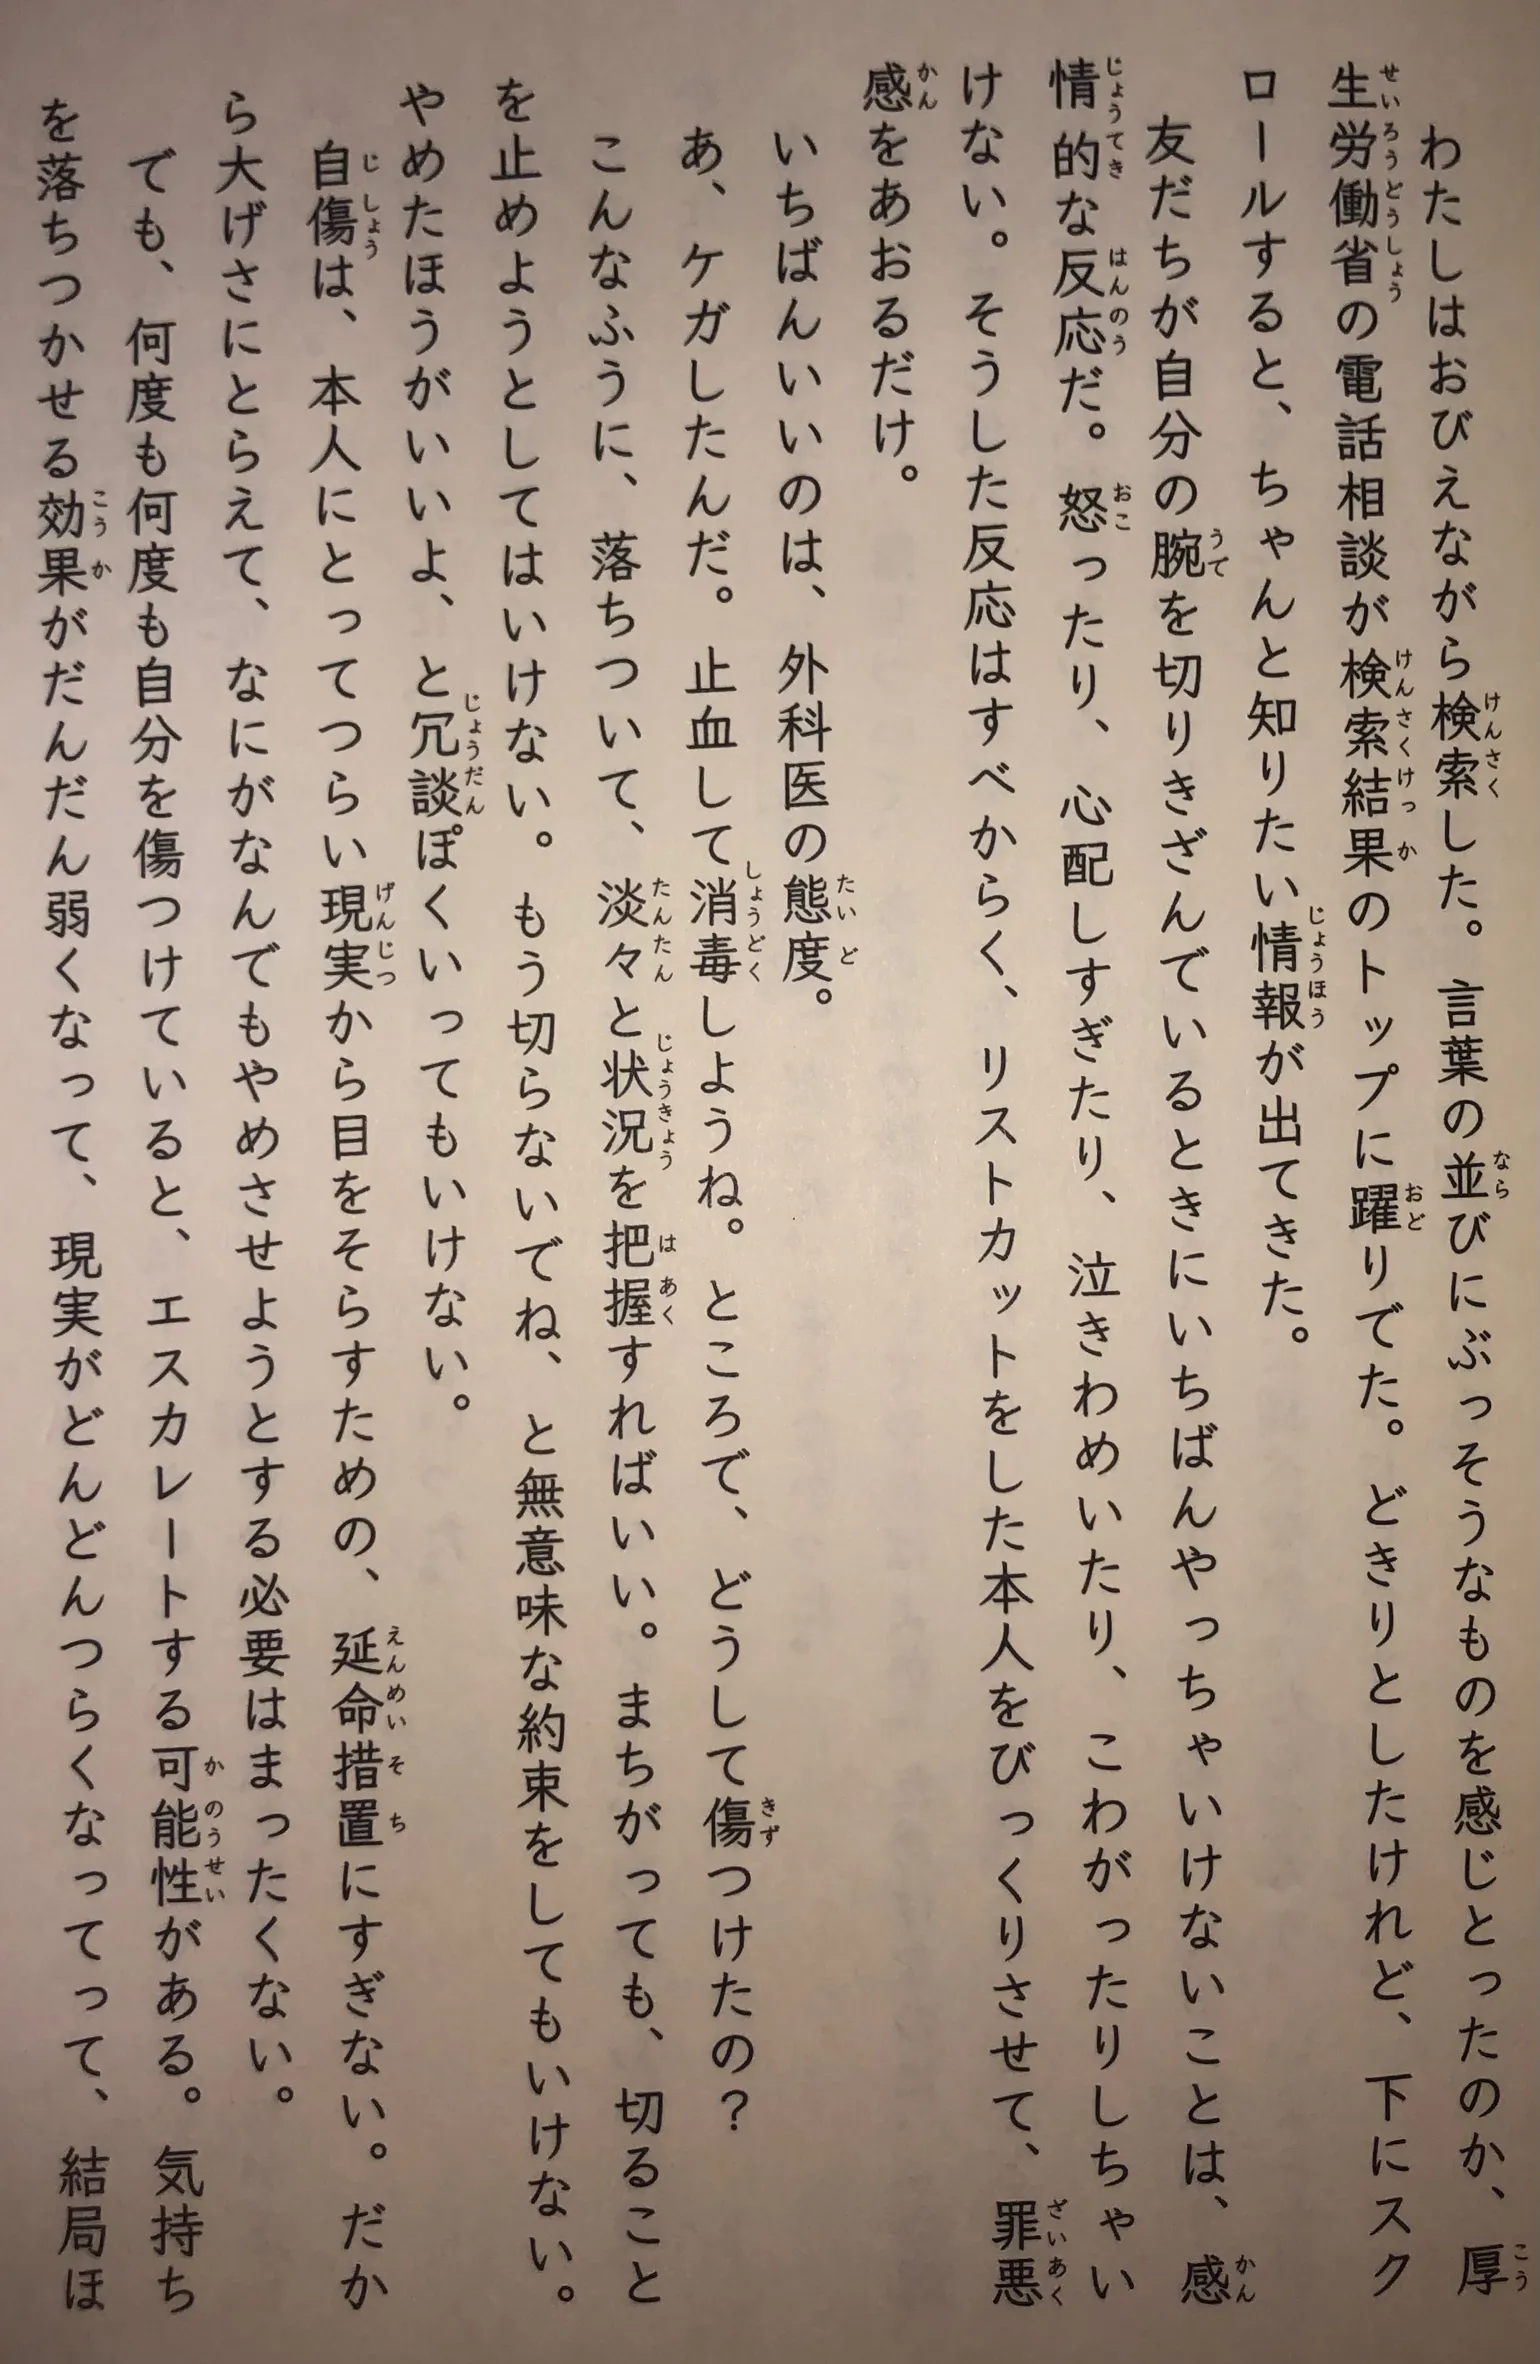 わたしはおびえながら検索した。言葉の並びにぶっそうなものを感じとったのか、厚
生労働省の電話相談が検索結果のトップに躍りでた。どきりとしたけれど、下にスク
ロールすると、ちゃんと知りたい情報が出てきた。
友だちが自分の腕を切りきざんでいるときにいちばんやっちゃいけないことは、感
情的な反応だ。怒ったり、心配しすぎたり、泣きわめいたり、こわがったりしちゃい
けない。そうした反応はすべからく、リストカットをした本人をびっくりさせて、罪悪
感をあおるだけ。
いちばんいいのは、外科医の態度。
あ、ケガしたんだ。止血して消毒しようね。ところで、どうして傷つけたの？
こんなふうに、落ちついて、淡々と状況を把握すればいい。まちがっても、切ること
を止めようとしてはいけない。もう切らないでね、と無意味な約束をしてもいけない。
やめたほうがいいよ、と冗談ぽくいってもいけない。
自傷は、本人にとってつらい現実から目をそらすための、延命措置にすぎない。だか
ら大げさにとらえて、なにがなんでもやめさせようとする必要はまったくない。
でも、何度も何度も自分を傷つけていると、エスカレートする可能性がある。気持ち
を落ちつかせる効果がだんだん弱くなって、現実がどんどんつらくなってって、結局ほ